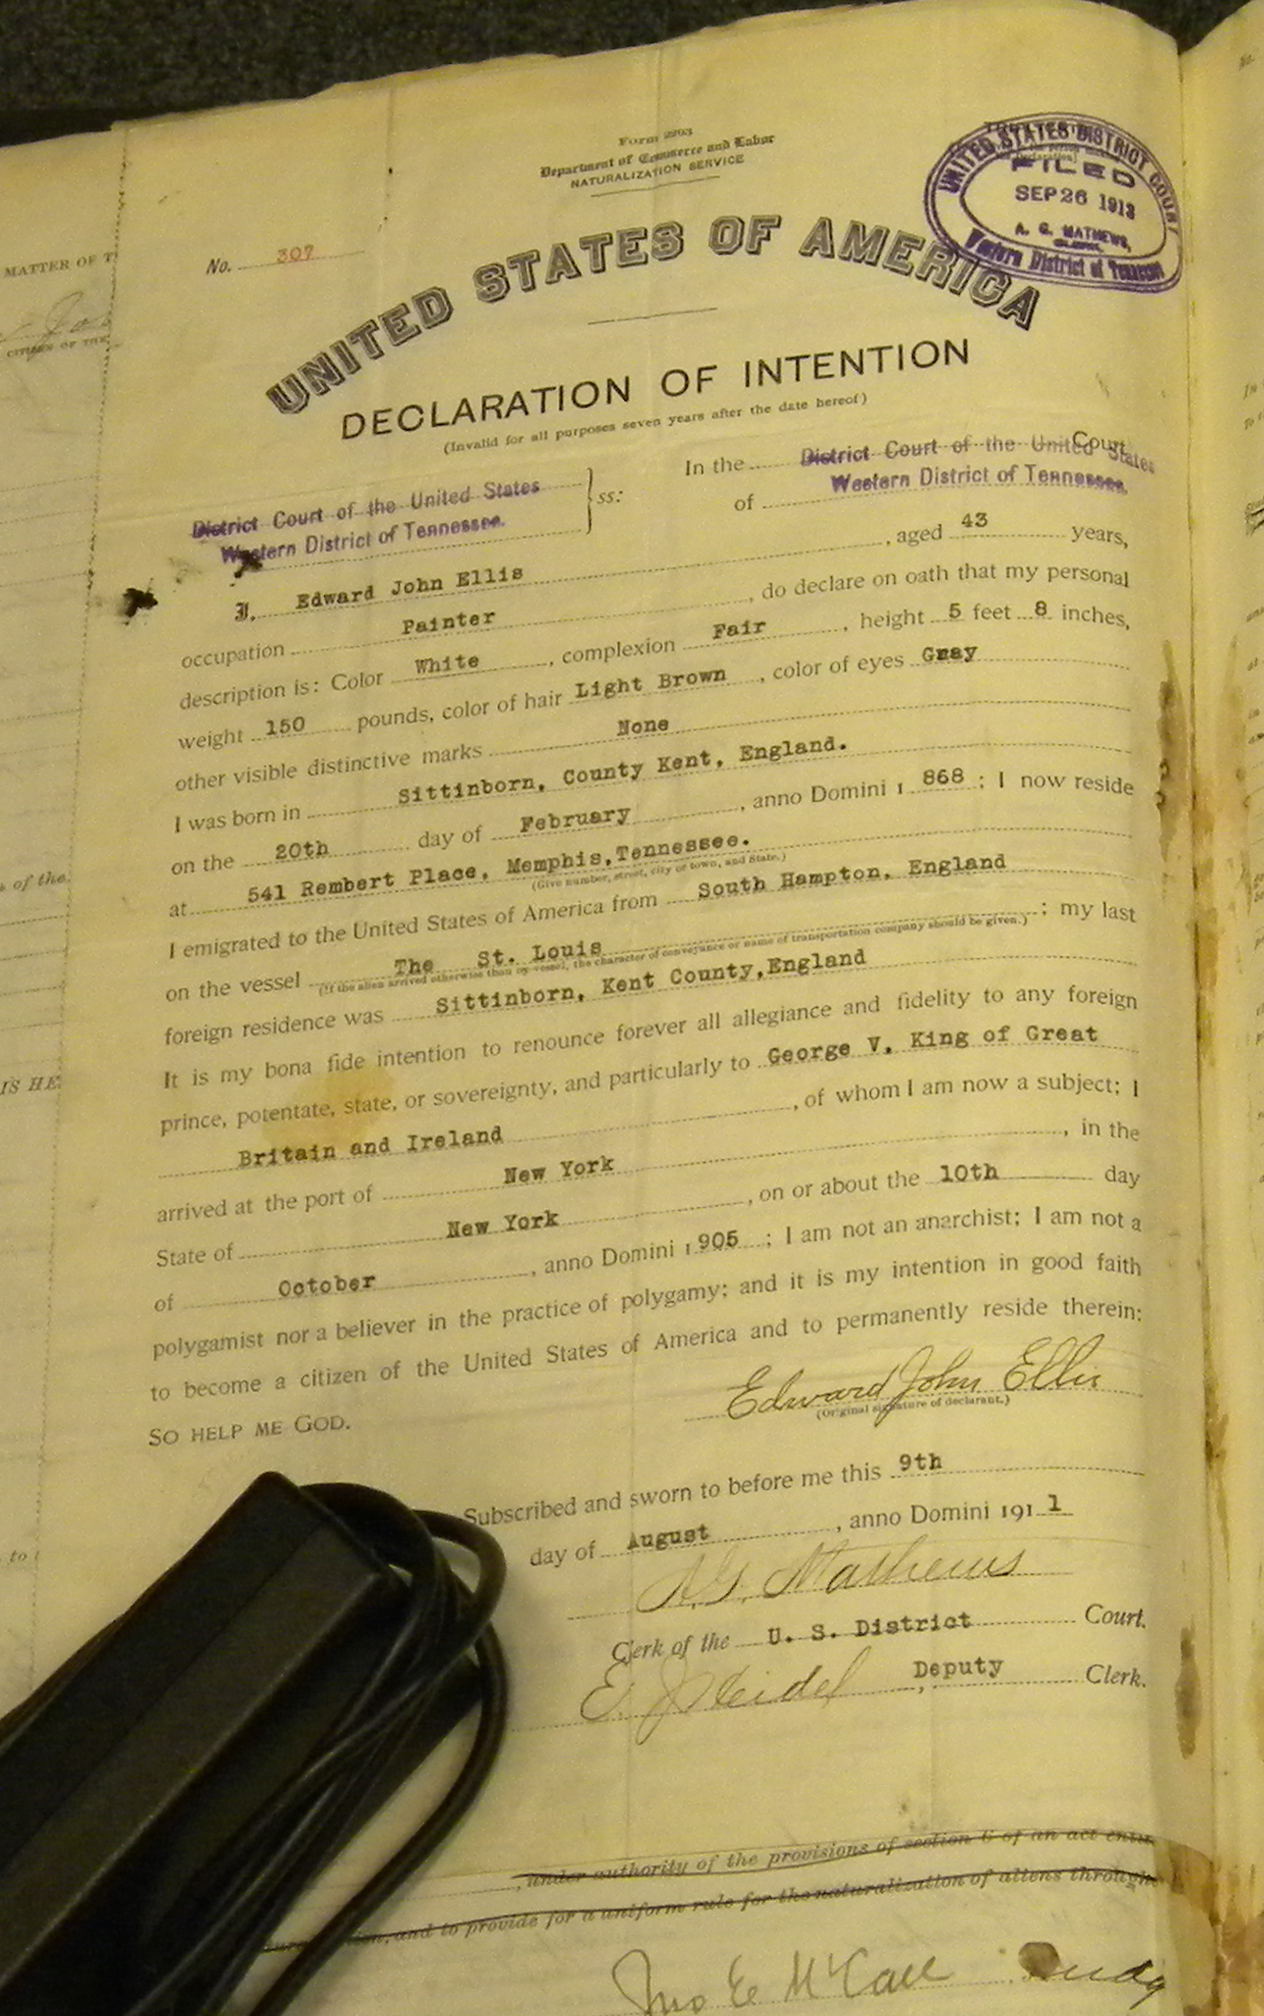 Form 2203
Department of Commerce and Labor
NATURALIZATION SERVICE
UNITED STATES DISTRICT COURT
FILED
SEP 26 1913
A. G. MATHEWS,
CLERK,
Western District of Tennessee
MATTER OF T
No. 307
CITIZEN OF THE
UNITED STATES OF AMERICA
DECLARATION OF INTENTION
(Invalid for all purposes seven years after the date hereof)
District Court of the United States
Western District of Tennessee.
ss:
In the District Court of the United States Court
of Western District of Tennessee.
I, Edward John Ellis, aged 43 years,
occupation Painter, do declare on oath that my personal
description is: Color White, complexion Fair, height 5 feet 8 inches,
weight 150 pounds, color of hair Light Brown, color of eyes Gray
other visible distinctive marks None
I was born in Sittinborn, County Kent, England.
on the 20th day of February, anno Domini 1 868; I now reside
at 541 Rembert Place, Memphis, Tennessee.
(Give number, street, city or town, and State.)
I emigrated to the United States of America from South Hampton, England
on the vessel The St. Louis; my last
(If the alien arrived otherwise than by vessel, the character of conveyance or name of transportation company should be given.)
foreign residence was Sittinborn, Kent County, England
It is my bona fide intention to renounce forever all allegiance and fidelity to any foreign
prince, potentate, state, or sovereignty, and particularly to George V, King of Great
Britain and Ireland, of whom I am now a subject; I
arrived at the port of New York, in the
State of New York, on or about the 10th day
of October, anno Domini 1 905; I am not an anarchist; I am not a
polygamist nor a believer in the practice of polygamy; and it is my intention in good faith
to become a citizen of the United States of America and to permanently reside therein:
SO HELP ME GOD.
Edward John Ellis
(Original signature of declarant.)
Subscribed and sworn to before me this 9th
day of August, anno Domini 191 1
A. G. Mathews
Clerk of the U. S. District Court.
Deputy Clerk.
of the
IS HE
to
, under authority of the provisions of section 6 of an act entit
, and to provide for a uniform rule for the naturalization of aliens through
Jno E McCall Judg